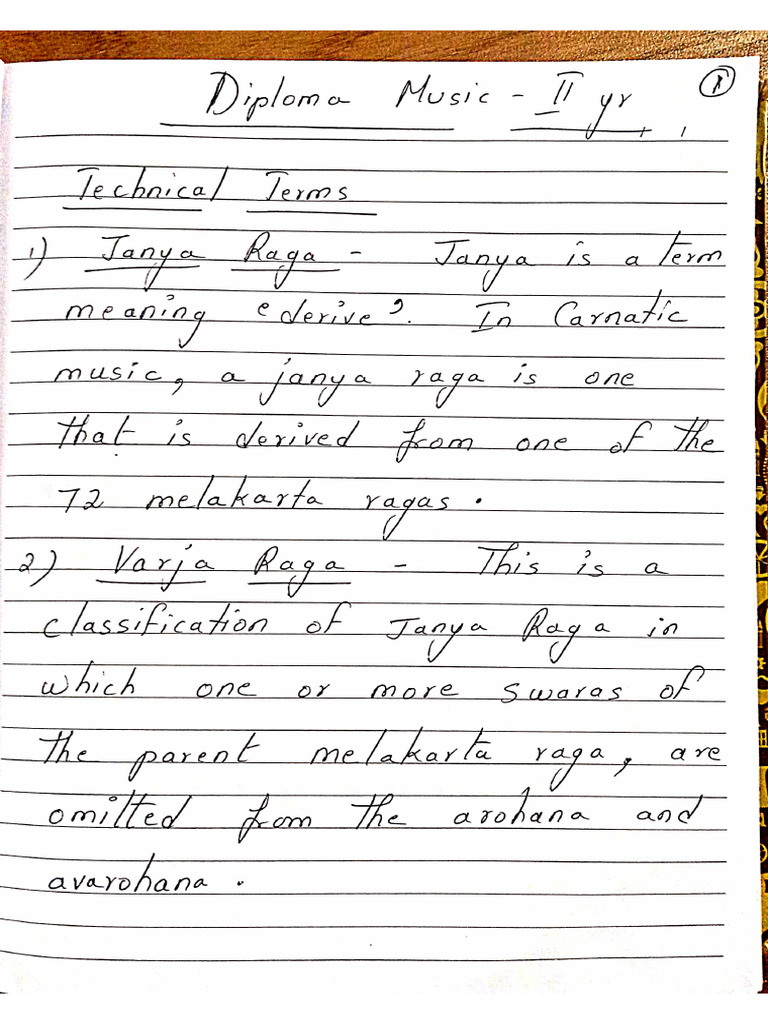 Diploma Music - II yr
1
Technical Terms
1) Janya Raga - Janya is a term
meaning ‘derive’. In Carnatic
music, a janya raga is one
that is derived from one of the
72 melakarta ragas.
2) Varja Raga - This is a
classification of Janya Raga in
which one or more swaras of
the parent melakarta raga, are
omitted from the arohana and
avarohana.